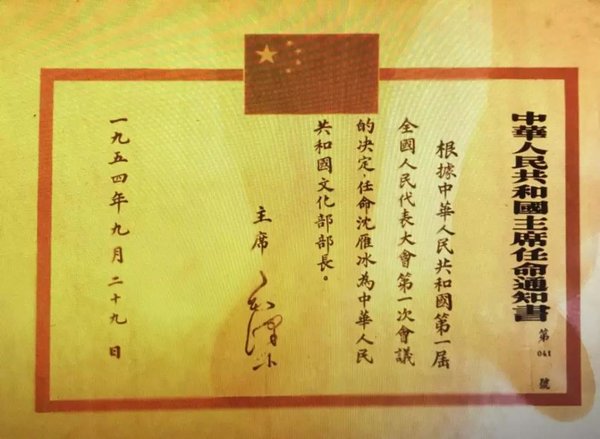 中華人民共和國主席任命通知書
第041號
根據中華人民共和國第一屆
全國人民代表大會第一次會議
的决定,任命沈雁冰為中華人民
共和國文化部部長。
主席
毛澤东
一九五四年九月二十九日